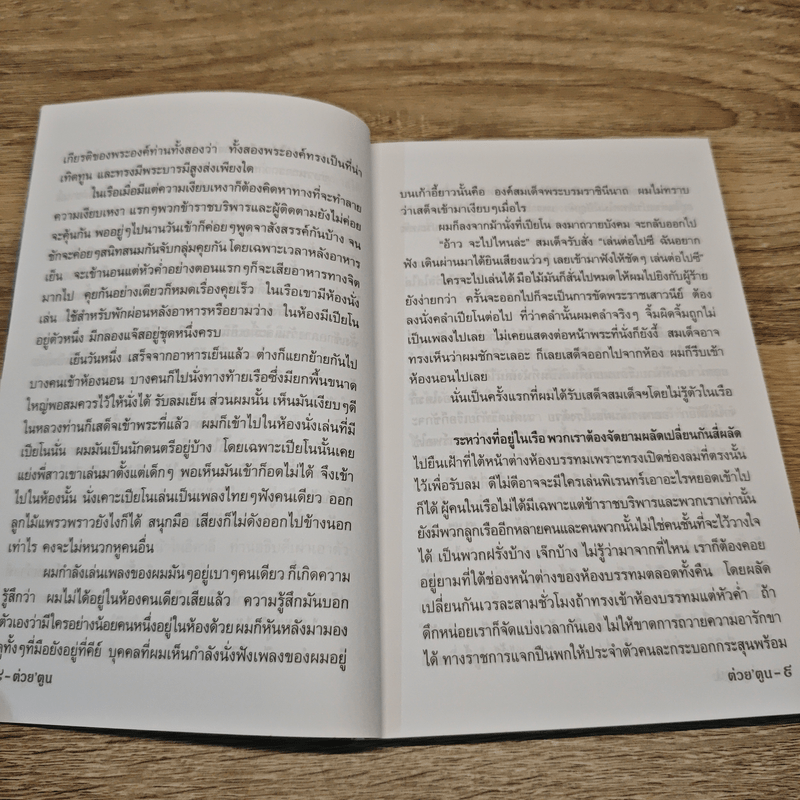 เกียรติของพระองค์ท่านทั้งสองว่า ทั้งสองพระองค์ทรงเป็นที่น่า
เทิดทูน และทรงมีพระบารมีสูงส่งเพียงใด
ในเรือเมื่อมีแต่ความเงียบเหงาก็ต้องคิดหาทางที่จะทำลาย
ความเงียบเหงา แรกๆพวกข้าราชบริพารและผู้ติดตามยังไม่ค่อย
จะคุ้นกัน พออยู่ๆไปนานวันเข้าก็ค่อยๆพูดจาสังสรรค์กันบ้าง จน
ชักจะค่อยๆสนิทสนมกันจับกลุ่มคุยกัน โดยเฉพาะเวลาหลังอาหาร
เย็น จะเข้านอนแต่หัวค่ำอย่างตอนแรกๆก็จะเสียอาหารทางจิต
มากไป คุยกันอย่างเดียวก็หมดเรื่องคุยเร็ว ในเรือเขามีห้องนั่ง
เล่น ใช้สำหรับพักผ่อนหลังอาหารหรือยามว่าง ในห้องมีเปียโน
อยู่ตัวหนึ่ง มีกลองแจ๊สอยู่ชุดหนึ่งครบ
เย็นวันหนึ่ง เสร็จจากอาหารเย็นแล้ว ต่างก็แยกย้ายกันไป
บางคนเข้าห้องนอน บางคนก็ไปนั่งทางท้ายเรือซึ่งมียกพื้นขนาด
ใหญ่พอสมควรไว้ให้นั่งได้ รับลมเย็น ส่วนผมนั้น เห็นมันเงียบๆดี
ในหลวงท่านก็เสด็จเข้าพระที่แล้ว ผมก็เข้าไปในห้องนั่งเล่นที่มี
เปียโนนั่น ผมมันเป็นนักดนตรีอยู่บ้าง โดยเฉพาะเปียโนนั้นเคย
แย่งพี่สาวเขาเล่นมาตั้งแต่เด็กๆ พอเห็นมันเข้าก็อดไม่ได้ จึงเข้า
ไปในห้องนั้น นั่งเคาะเปียโนเล่นเป็นเพลงไทยๆฟังคนเดียว ออก
ลูกไม้แพรวพราวยังไงก็ได้ สนุกมือ เสียงก็ไม่ดังออกไปข้างนอก
เท่าไร คงจะไม่หนวกหูคนอื่น
ผมกำลังเล่นเพลงของผมมันๆอยู่เบาๆคนเดียว ก็เกิดความ
รู้สึกว่า ผมไม่ได้อยู่ในห้องคนเดียวเสียแล้ว ความรู้สึกมันบอก
ตัวเองว่ามีใครอย่างน้อยคนหนึ่งอยู่ในห้องด้วย ผมก็หันหลังมามอง
ทั้งๆที่มือยังอยู่ที่คีย์ บุคคลที่ผมเห็นกำลังนั่งฟังเพลงของผมอยู่
๘-ต่วย'ตูน
บนเก้าอี้ยาวนั้นคือ องค์สมเด็จพระบรมราชินีนาถ ผมไม่ทราบ
ว่าเสด็จเข้ามาเงียบๆเมื่อไร
ผมก็ลงจากม้านั่งที่เปียโน ลงมาถวายบังคม จะกลับออกไป
“อ้าว จะไปไหนล่ะ” สมเด็จรับสั่ง “เล่นต่อไปซี ฉันอยาก
ฟัง เดินผ่านมาได้ยินเสียงแว่วๆ เลยเข้ามาฟังให้ชัดๆ เล่นต่อไปซี”
ใครจะไปเล่นได้ มือไม้มันก็สั่นไปหมด ให้ผมไปยิงกับผู้ร้าย
ยังง่ายกว่า ครั้นจะออกไปก็จะเป็นการขัดพระราชเสาวนีย์ ต้อง
ลงนั่งคลำเปียโนต่อไป ที่ว่าคลำนั้นผมคลำจริงๆ จิ้มผิดจิ้มถูกไม่
เป็นเพลงไปเลย ไม่เคยแสดงต่อหน้าพระที่นั่งก็ยังงี้ สมเด็จอาจ
ทรงเห็นว่าผมชักจะเลอะ ก็เลยเสด็จออกไปจากห้อง ผมก็รีบเข้า
ห้องนอนไปเลย
นั่นเป็นครั้งแรกที่ผมได้รับเสด็จสมเด็จฯโดยไม่รู้ตัวในเรือ
ระหว่างที่อยู่ในเรือ พวกเราต้องจัดยามผลัดเปลี่ยนกันสี่ผลัด
ไปยืนเฝ้าที่ใต้หน้าต่างห้องบรรทมเพราะทรงเปิดช่องลมที่ตรงนั้น
ไว้เพื่อรับลม ดีไม่ดีอาจจะมีใครเล่นพิเรนทร์เอาอะไรหยอดเข้าไป
ก็ได้ ผู้คนในเรือไม่ได้มีเฉพาะแต่ข้าราชบริพารและพวกเราเท่านั้น
ยังมีพวกลูกเรืออีกหลายคนและคนพวกนั้นไม่ใช่คนชั้นที่จะไว้วางใจ
ได้ เป็นพวกฝรั่งบ้าง เจ๊กบ้าง ไม่รู้ว่ามาจากที่ไหน เราก็ต้องคอย
อยู่ยามที่ใต้ช่องหน้าต่างของห้องบรรทมตลอดทั้งคืน โดยผลัด
เปลี่ยนกันเวรละสามชั่วโมงถ้าทรงเข้าห้องบรรทมแต่หัวค่ำ ถ้า
ดึกหน่อยเราก็จัดแบ่งเวลากันเอง ไม่ให้ขาดการถวายความอารักขา
ได้ ทางราชการแจกปืนพกให้ประจำตัวคนละกระบอกกระสุนพร้อม
ต่วย'ตูน-๙